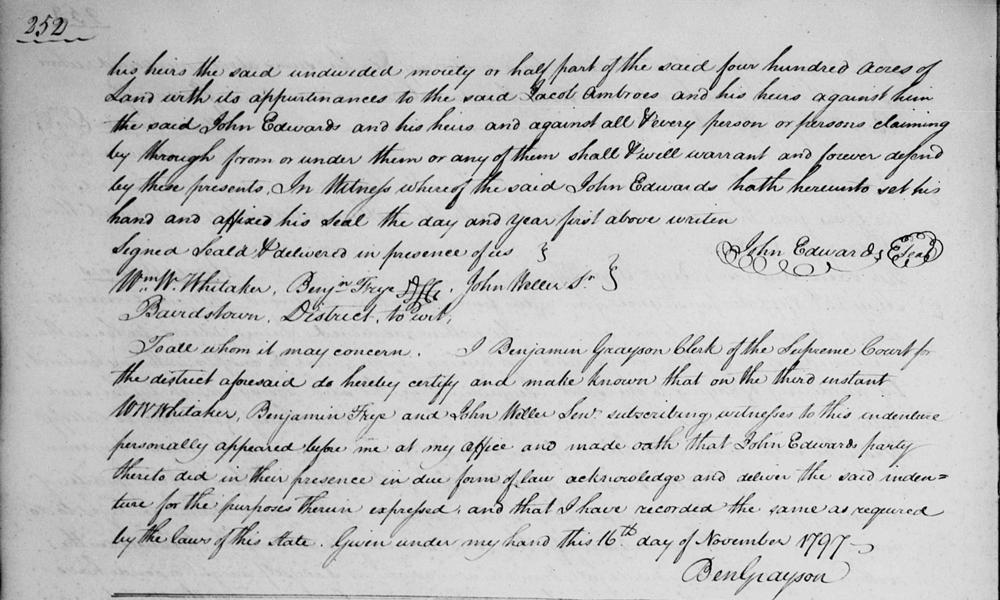 252
his heirs the said undivided moiety or half part of the said four hundred Acres of
Land with its appurtinances to the said Jacob Ambroes and his heirs against him
the said John Edwards and his heirs and against all & every person or persons claiming
by through from or under them or any of them shall & will warrant and forever defend
by these presents. In Witness whereof the said John Edwards hath hereunto set his
hand and affixed his Seal the day and year first above writen
Signed Seald & delivered in presence of us } John Edwards Seal
Wm. W. Whitaker, Benjn Frye, John Weller Sr }
Bairdstown District, to wit,
To all whom it may concern. I Benjamin Grayson Clerk of the Supreme Court for
the district aforesaid do hereby certify and make known that on the third instant
W W Whitaker, Benjamin Frye and John Weller Senr subscribing witnesses to this indenture
personally appeared before me at my office and made oath that John Edwards party
thereto did in their presence in due form of law acknowledge and deliver the said inden=
ture for the purposes therein expressed, and that I have recorded the same as required
by the laws of this State. Given under my hand this 16th day of November 1797
Ben Grayson